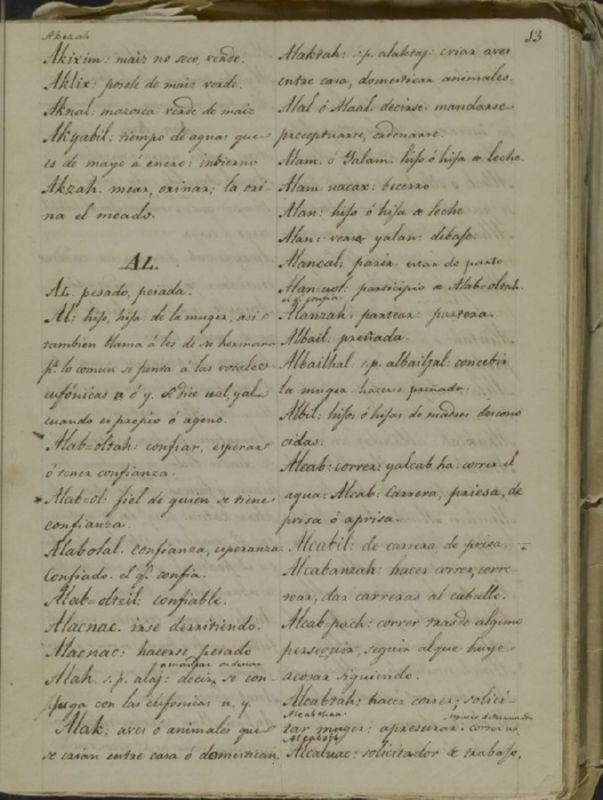 Akzah
13
Akixim: maiz no seco, verde.
Aklix: posole de maiz verde.
Aknal: mazorca verde de maiz
Akyabil: tiempo de aguas que
es de mayo á enero: imbierno
Akzah. mear, orinar; la ori-
na el meado.
AL.
AL. pesado, pesada.
Al: hijo, hija: de la muger, asi
tambien llama á los de su hermana
pr. lo comun se junta á las vocales
eufónicas u ó y. dice ual, yal
cuando es propio ó ageno.
Alab=oltah: confiar, esperar
ó tener confianza.
Alab=ol: fiel de quien se tiene
confianza.
Alabolal. confianza, esperanza
Confiado. el q. confia.
Alab=oltzil: confiable.
Alacnac. irse derritiendo.
Alacnac: hacerse pesado
mandar ordenar
Alah. s.p. alaj: decir, se con-
juga con las eufonicas u. y.
Alak: aves ó animales que
se crian entre casa ó domestican.
Alaktah: s.p. alaktaj: criar aves
entre casa, domesticar animales.
Alal ó Alaal. decirse mandarse
preceptuarse, ordenarse.
Alam. ó Yalam. hijo ó hija de leche.
Alam uacax: becerro
Alan: hijo ó hija de leche
Alan: vease yalan: debajo.
Alancal: parir. estar de parto
Alan=uol: participio de Alab=oltah.
el q. confia.
Alanzah. partear: partera.
Albail: preñada.
Albailhal. s.p. albailjal: concebir
la muger hacerse preñada.
Albil: hijos ó hijas de madres descono
cidas.
Alcab: correr: yalcab ha: correr el
agua: Alcab: Carrera, priesa, de
prisa ó aprisa.
Alcabil: de carrera, de prisa.
Alcabanzah: hacer correr, corre-
tear, dar carreras al caballo.
Alcab pach: correr tras de alguno
perseguir, seguir al que huye
acosar siguiendo.
Alcabtah: hacer correr; solici-
tar muger; apresurar: correr
Alcaluac: solicitador de trabajo,